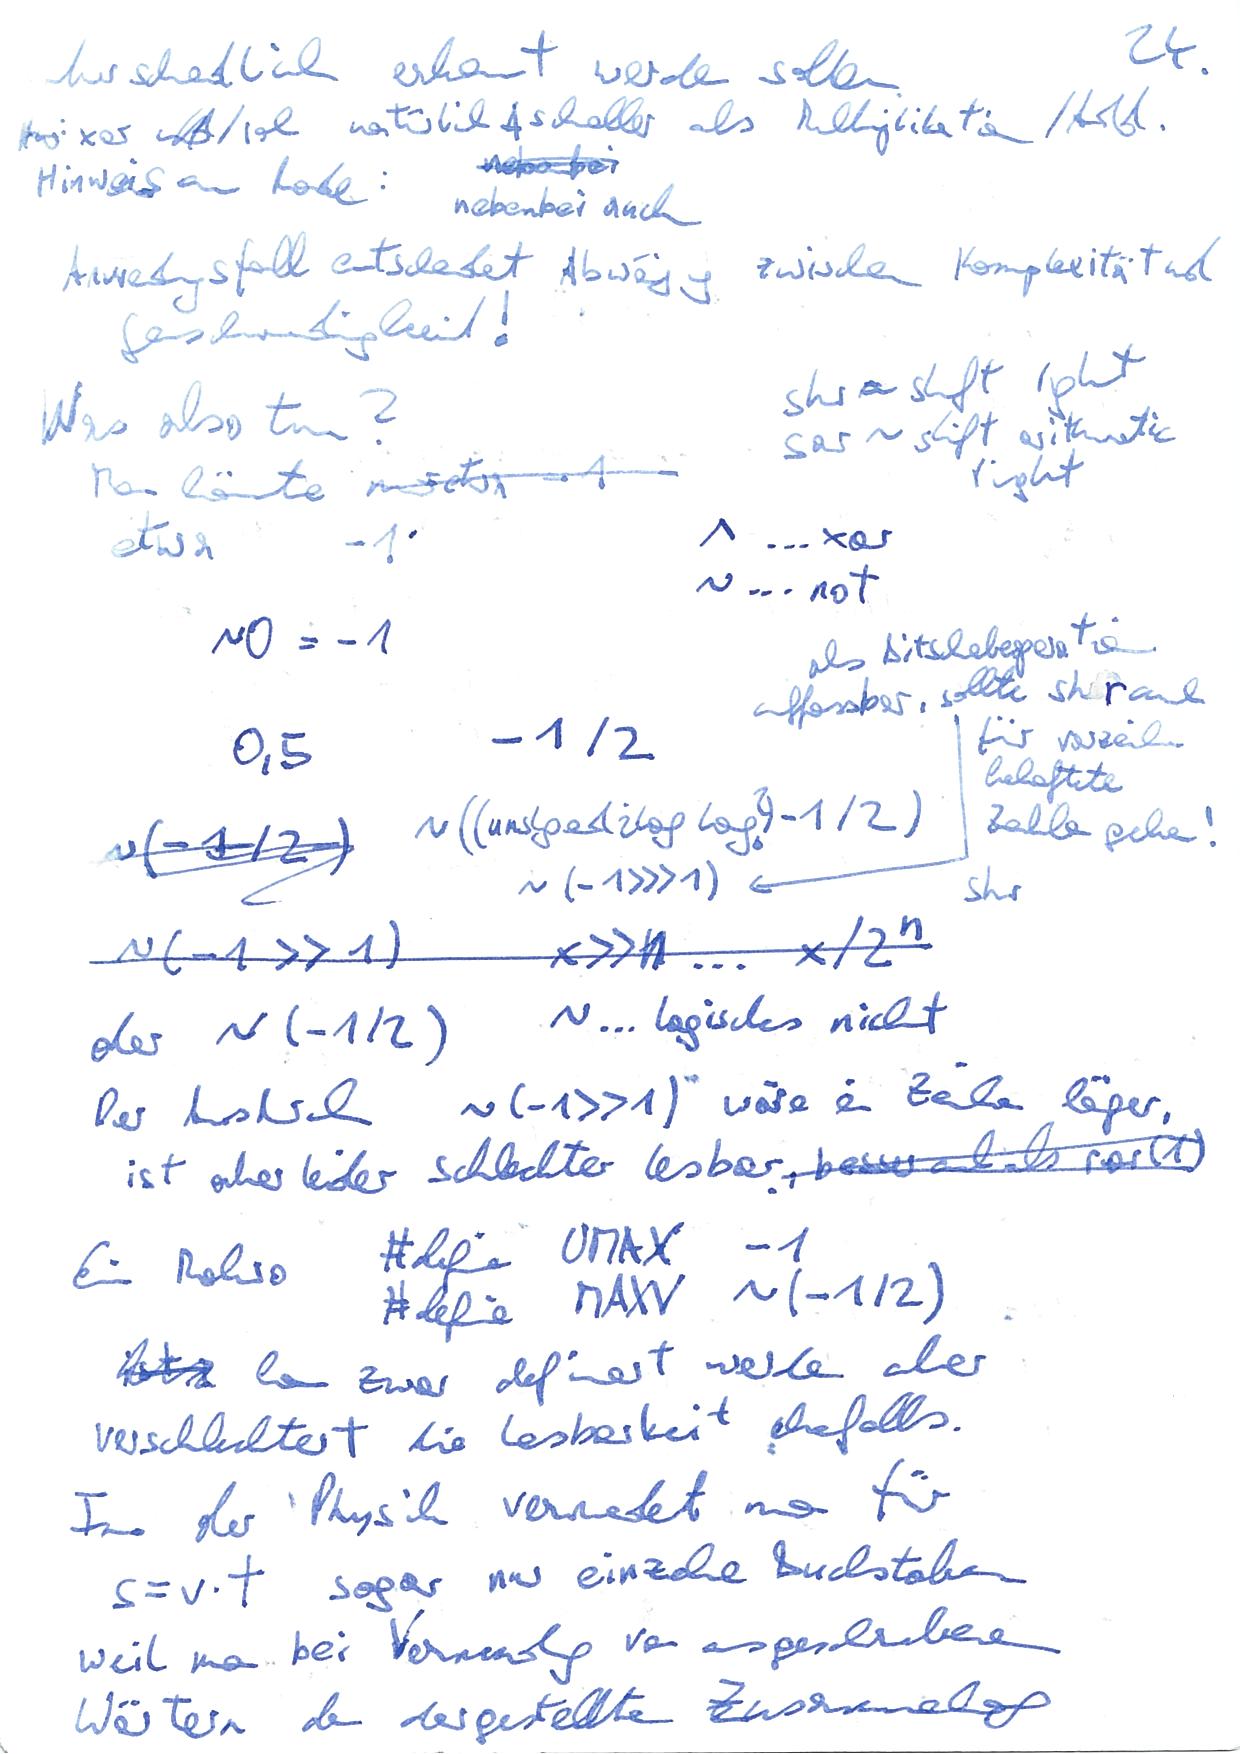 24.
unterschiedlich erkannt werden sollen
xor natürlich schneller als Multiplikation / Add.
Hinweis am Rande: nebenbei
nebenbei auch
Anwendungsfall entscheidet Abwägung zwischen Komplexität und
Geschwindigkeit!
Was also tun?
shr ~ shift right
sar ~ shift arithmetic
right
Man könnte
etwa -1
^ ... xor
~ ... not
~0 = -1
als Bitschiebeoperation
auffassbar, sollte shr auch
für vorzeichen
behaftete
Zahlen gehen!
0,5 -1/2
~(-1/2) ~((unsigned long long)-1/2)
~(-1>>>1)
shr
~(-1 >> 1) x>>n ... x/2ⁿ
der ~(-1/2) ~... logisches nicht
Der Ausdruck ~(-1>>1) wäre ein Zeichen länger,
ist aber leider schlechter lesbar, besser als ror(1)
Ein Makro #define UMAX -1
#define MAXV ~(-1/2)
kann zwar definiert werden aber
verschlechtert die Lesbarkeit ebenfalls.
In der Physik verwendet man für
s=v·t sogar nur einzelne Buchstaben
weil man bei Verwendung von ausgeschriebenen
Wörtern den dargestellten Zusammenhang